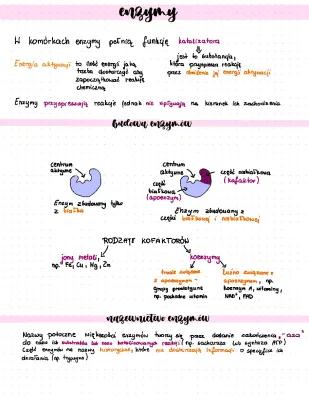 enzymy
W komórkach enzymy pełnią funkcję katalizatora
jest to substancja,
która przyspiesza reakcję
przez obniżenie jej energii aktywacji
Energia aktywacji to ilość energii jaką
trzeba dostarczyć aby
zapoczątkować reakcję
chemiczną
Enzymy przyspieszają reakcje (jednak nie wpływają na kierunek ich zachodzenia
budowa enzymów
centrum
aktywne
Enzym zbudowany tylko
z białka
centrum
aktywne
część
białkowa
(apoenzym)
część niebiałkowa
(kofaktor)
Enzym zbudowany z
części białkowej i niebiałkowej
RODZAJE KOFAKTORÓW
jony metali,
np. Fe, Cu, Mg, Zn
koenzymy
trwale związane
z apoenzymem -
grupy prostetyczne
np. pochodne witamin
luźno związane z
apoenzymem, np.
koenzym A, witaminy,
NAD⁺, FAD
nazewnictwo enzymów
Nazwy potoczne większości enzymów tworzy się przez dodanie zakończenia „aza"
do nazw ich substratu lub nazw katalizowanych reakcji (np. sacharaza lub syntaza ATP)
Część enzymów ma nazwy historyczne, które nie dostarczają informacji o specyfice ich
działania (np. trypsyna)